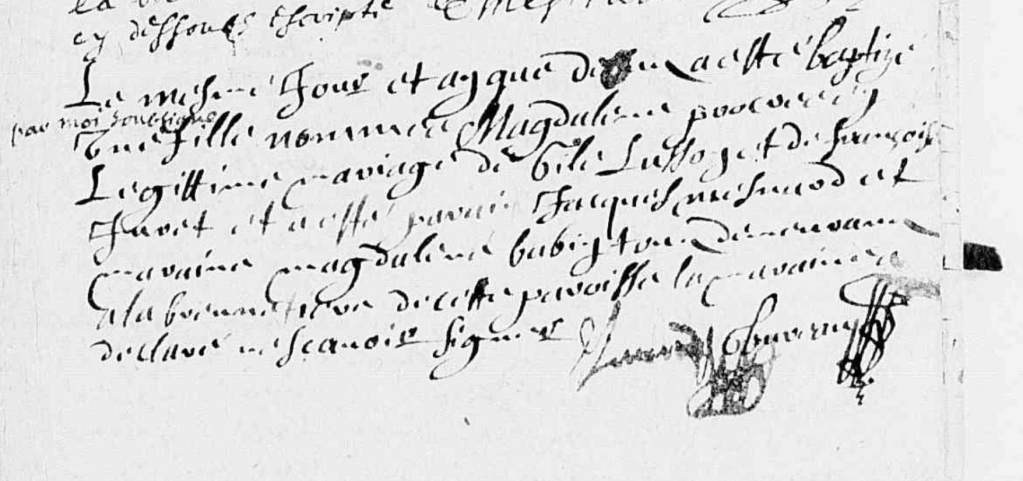 en dessoubs escripte
Le mesme Jour et an que dessus a esté baptizé
par moi soubsigné
Une fille nommée Magdalene procree en
Legittime mariage de Gile Lusson et de françoise
Juret et a esté parain Jacques mesnard et
maraine magdalene babigton demeurans
a la bronnetiere de cette paroisse la maraine a
declaré ne scavoir signer